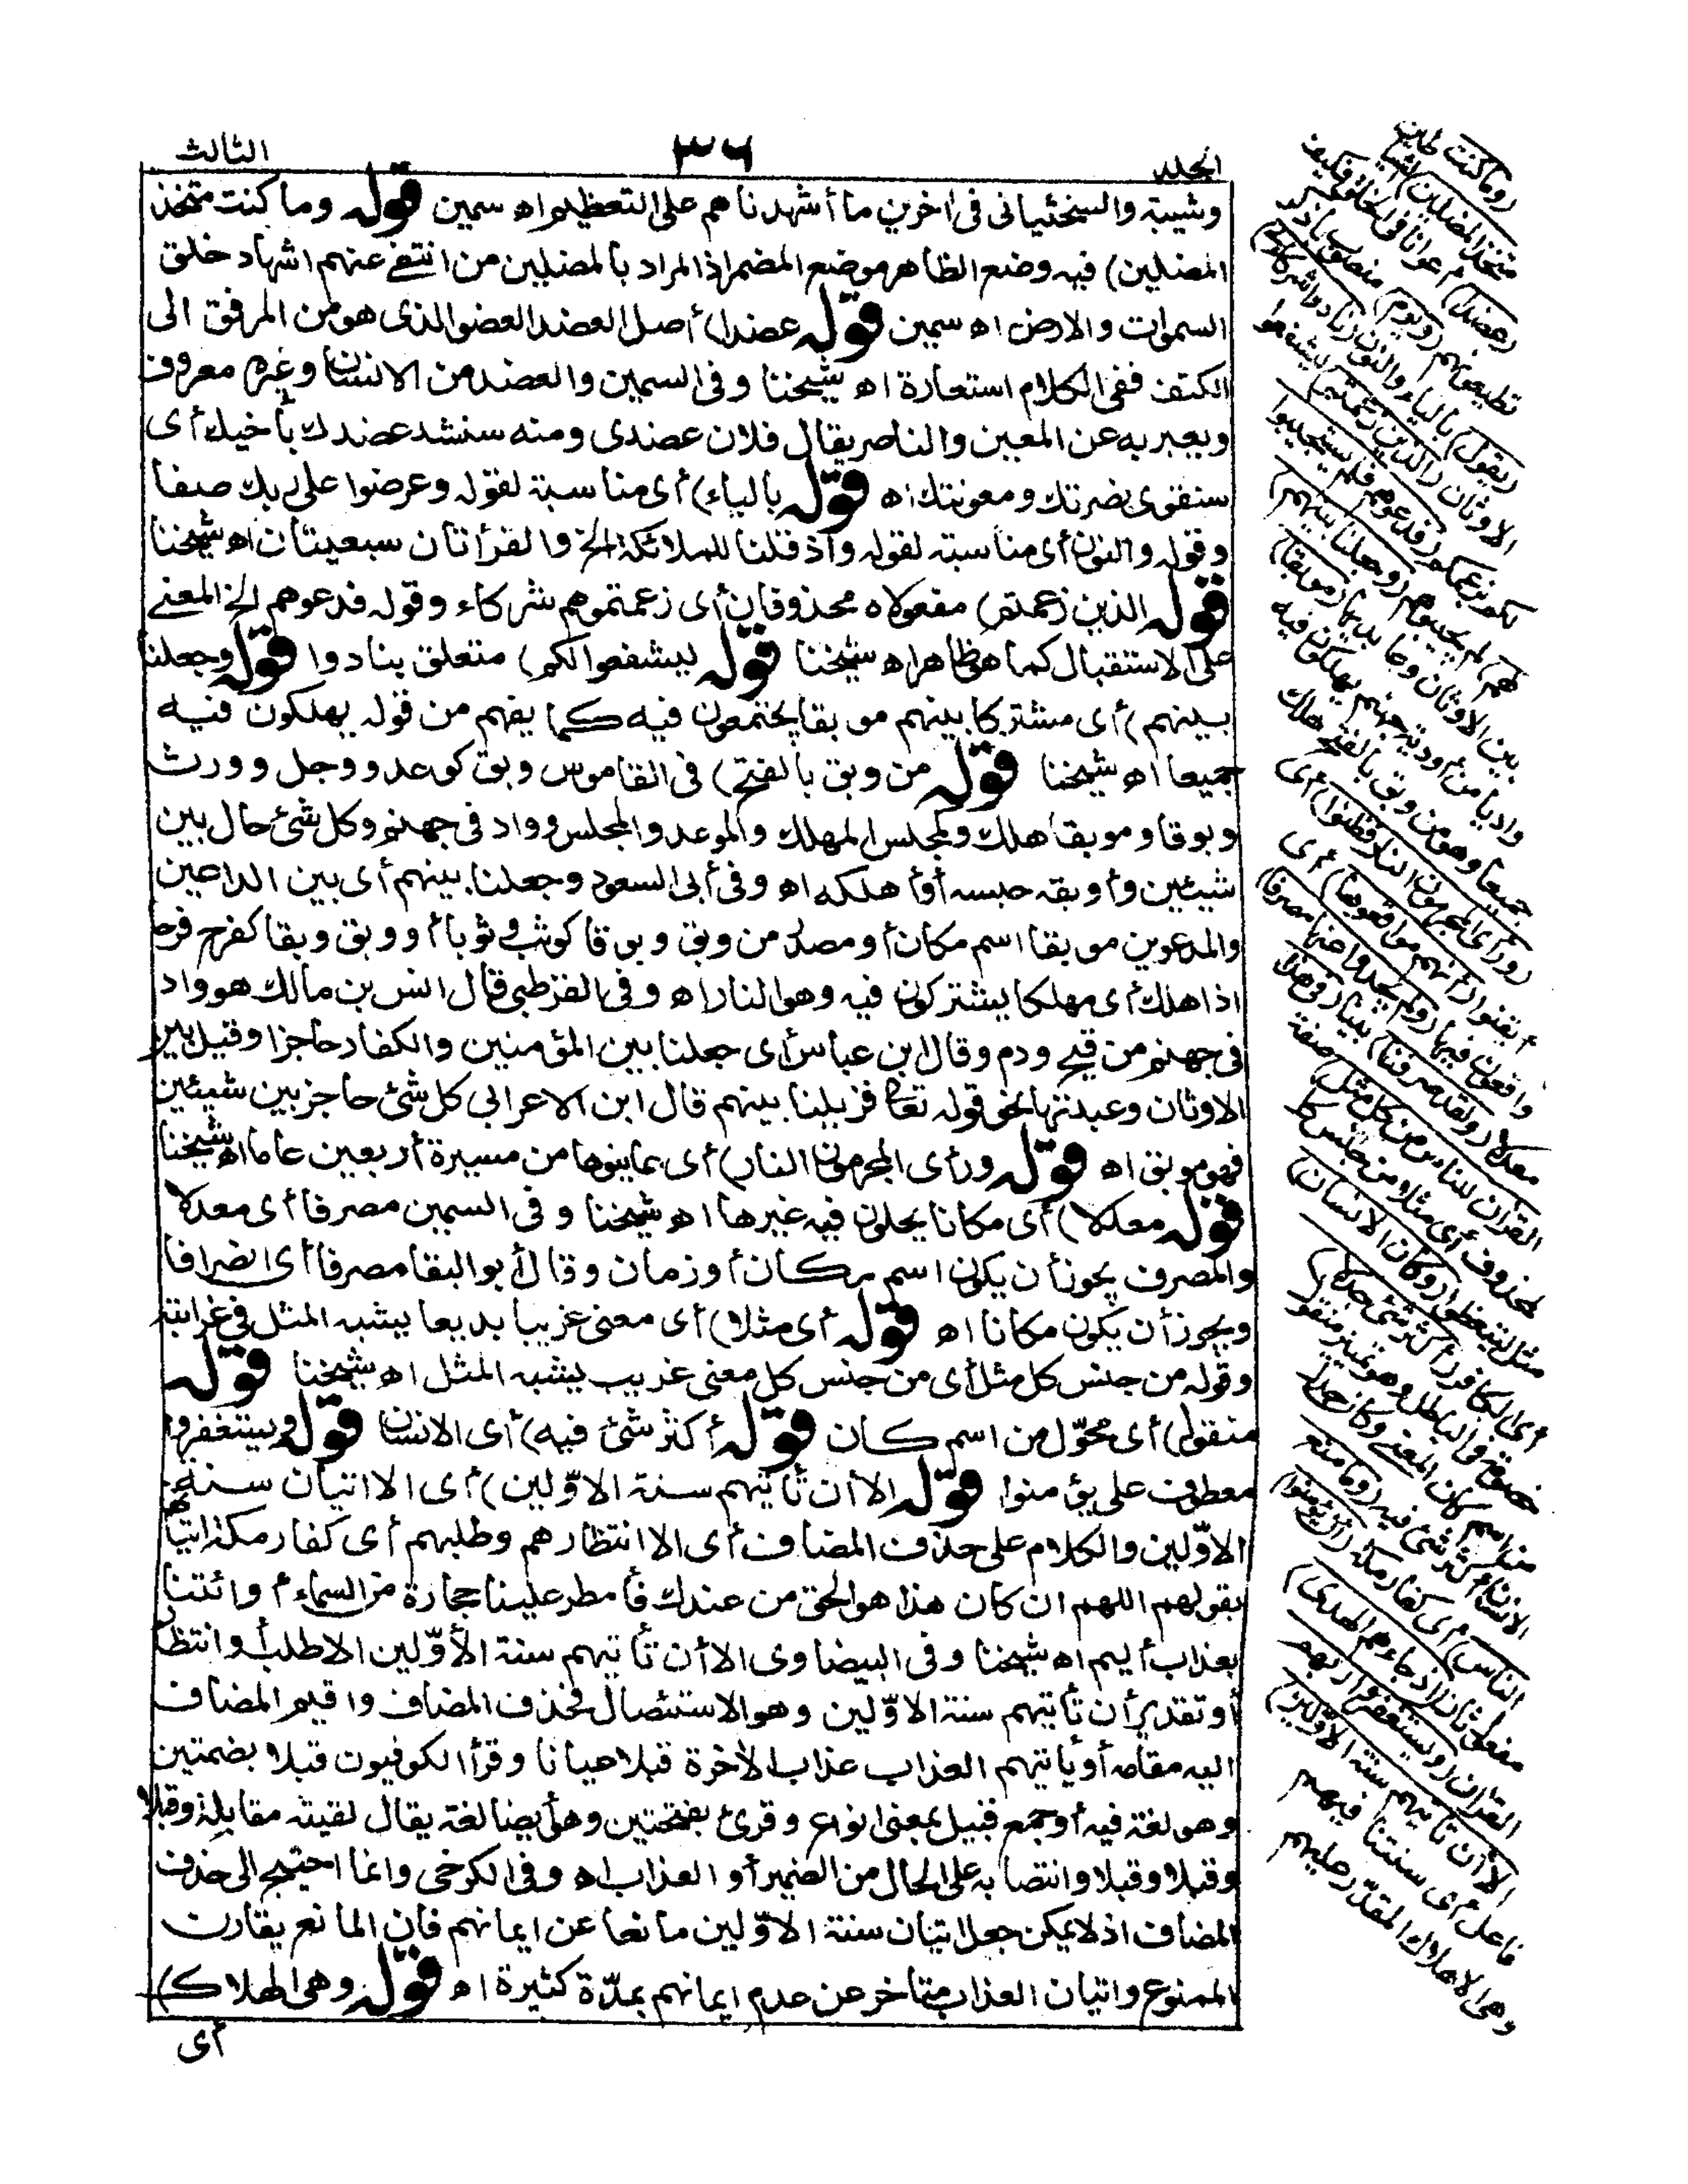 المجلد ٣٦ الثالث
وشيبة والسختيانى فى اخرين ما أشهدناهم على التعظيم اه سمين قوله وما كنت متخذ
المضلين) فيه وضع الظاهر موضع المضمر اذ المراد بالمضلين من انتفے عنهم اشهاد خلق
السموات والارض اه سمين قوله عضدا) أصل العضد العضو الذى هو من المرفق الى
الكتف ففى الكلام استعارة اه شيخنا وفى السمين والعضد من الانسان وغيره معروف
ويعبر به عن المعين والناصر يقال فلان عضدى ومنه سنشد عضدك بأخيك أى
سنقوى نصرتك ومعونتك اه قوله بالياء) أى مناسبة لقوله وعرضوا على ربك صفا
وقوله والنون أى مناسبته لقوله واذ قلنا للملائكة الخ والقرأتان سبعيتان اه شيخنا
قوله الذين زعمتم) مفعولاه محذوفان أى زعمتموهم شركاء وقوله فدعوهم الخ المعنے
على الاستقبال كما هو ظاهر اه شيخنا قوله ليشفعوا لكم) متعلق بنادوا قوله وجعلنا
بينهم) أى مشتركا بينهم موبقا يجتمعون فيه كما يفهم من قوله يهلكون فيه
جميعا اه شيخنا قوله من وبق بالفتح) فى القاموس وبق كوعد ووجل وورث
وبوقا وموبقا هلك وكمجلس المهلك والموعد والمجلس وواد فى جهنم وكل شئ حال بين
شيئين وأوبقه حبسه أو أهلكه اه وفى أبى السعود وجعلنا بينهم أى بين الداعين
والمدعوين موبقا اسم مكان أو مصدر من وبق وبوقا كوثب وثوبا أو وبق وبقا كفرح فرحا
اذا هلك أى مهلكا يشتركون فيه وهو النار اه وفى القرطبى قال انس بن مالك هو واد
فى جهنم من قيح ودم وقال ابن عباس أى جعلنا بين المؤمنين والكفار حاجزا وقيل بين
الاوثان وعبدتها نحو قوله تعالى فزيلنا بينهم قال ابن الاعرابى كل شئ حاجز بين شيئين
فهو موبق اه قوله ورأى المجرمون النار) أى عاينوها من مسيرة أربعين عاما اه شيخنا
قوله معدلا) أى مكانا يحلون فيه غيرها اه شيخنا وفى السمين مصرفا أى معدلا
والمصرف يجوز أن يكون اسم مكان أو زمان وقال أبو البقا مصرفا أى انصرافا
ويجوز أن يكون مكانا اه قوله أى مثلا) أى معنى غريبا بديعا يشبه المثل فى غرابته
وقوله من جنس كل مثل أى من جنس كل معنى غريب يشبه المثل اه شيخنا قوله
منقول) أى محوّل من اسم كان قوله أكثر شئ فيه) أى الانسان قوله ويستغفروا
معطوف على يؤمنوا قوله الا أن تأتيهم سنة الاوّلين) أى الا اتيان سنة
الاوّلين والكلام على حذف المضاف أى الا انتظارهم وطلبهم أى كفار مكة اتيانها
بقولهم اللهم ان كان هذا هو الحق من عندك فأمطر علينا حجارة من السماء أو ائتنا
بعذاب أليم اه شيخنا وفى البيضاوى الا أن تأتيهم سنة الأوّلين الا طلب أو انتظار
أو تقدير أن تأتيهم سنة الاوّلين وهو الاستئصال فحذف المضاف واقيم المضاف
اليه مقامه أو يأتيهم العذاب عذاب الأخرة قبلا عيانا وقرأ الكوفيون قبلا بضمتين
وهو لغة فيه أو جمع قبيل بمعنى انواع وقرئ بفتحتين وهو أيضا لغة يقال لقيته مقابلة وقبلا
وقبلا وقبلا وانتصابه على الحال من الضمير أو العذاب اه وفى الكرخى وانما احتيج الى حذف
المضاف اذ لا يمكن جعل اتيان سنة الاوّلين مانعا عن ايمانهم فان المانع يقارن
الممنوع واتيان العذاب متاخر عن عدم ايمانهم بمدّة كثيرة اه قوله وهى الهلاك)
أى
(وما كنت
متخذ المضلين)
(عضدا) أعوانا فى الخلق فكيف
تطيعونهم (ويوم) منصوب باذكر
(يقول) بالياء والنون (نادوا شركائى)
الاوثان (الذين زعمتم) ليشفعوا
لكم بزعمكم (فدعوهم فلم يستجيبوا
لهم) لم يجيبوهم (وجعلنا بينهم)
بين الاوثان وعابديها (موبقا)
واديا من أودية جهنم يهلكون فيه
جميعا وهو من وبق بالفتح هلك
(ورأى المجرمون النار فظنوا) أى
أيقنوا (أنهم مواقعوها) أى
واقعون فيها (ولم يجدوا عنها مصرفا)
معدلا (ولقد صرفنا) بينا (فى هذا
القرأن للناس من كل مثل) صفة
لمحذوف أى مثلا من جنس كل
مثل ليتعظوا (وكان الانسان)
أى الكافر (أكثر شئ جدلا)
خصومة فى الباطل وهو تمييز منقول
من اسم كان المعنے وكان جدل
الانسان أكثر شئ فيه (وما منع
الناس) أى كفار مكة (أن يؤمنوا)
مفعول ثان (اذ جاءهم الهدى)
القرأن (ويستغفروا ربهم
الا أن تأتيهم سنة الاوّلين)
فاعل أى سنتنا فيهم
وهى الاهلاك المقدّر عليهم